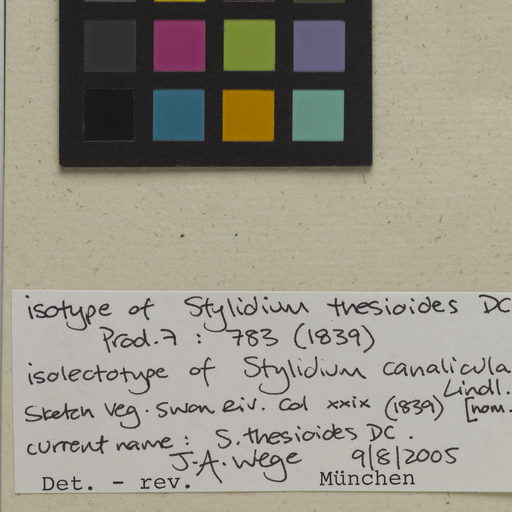 isotype of Stylidium thesioides DC
Prod. 7 : 783 (1839)
isolectotype of Stylidium canalicula
Lindl.
Sketch Veg. Swan Riv. Col xxix (1839) [nom.
current name : S. thesioides DC.
J.A. Wege 9/8/2005
Det. - rev. München